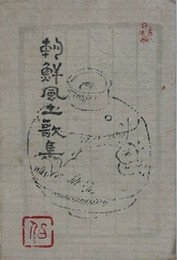 朝鮮風土歌集